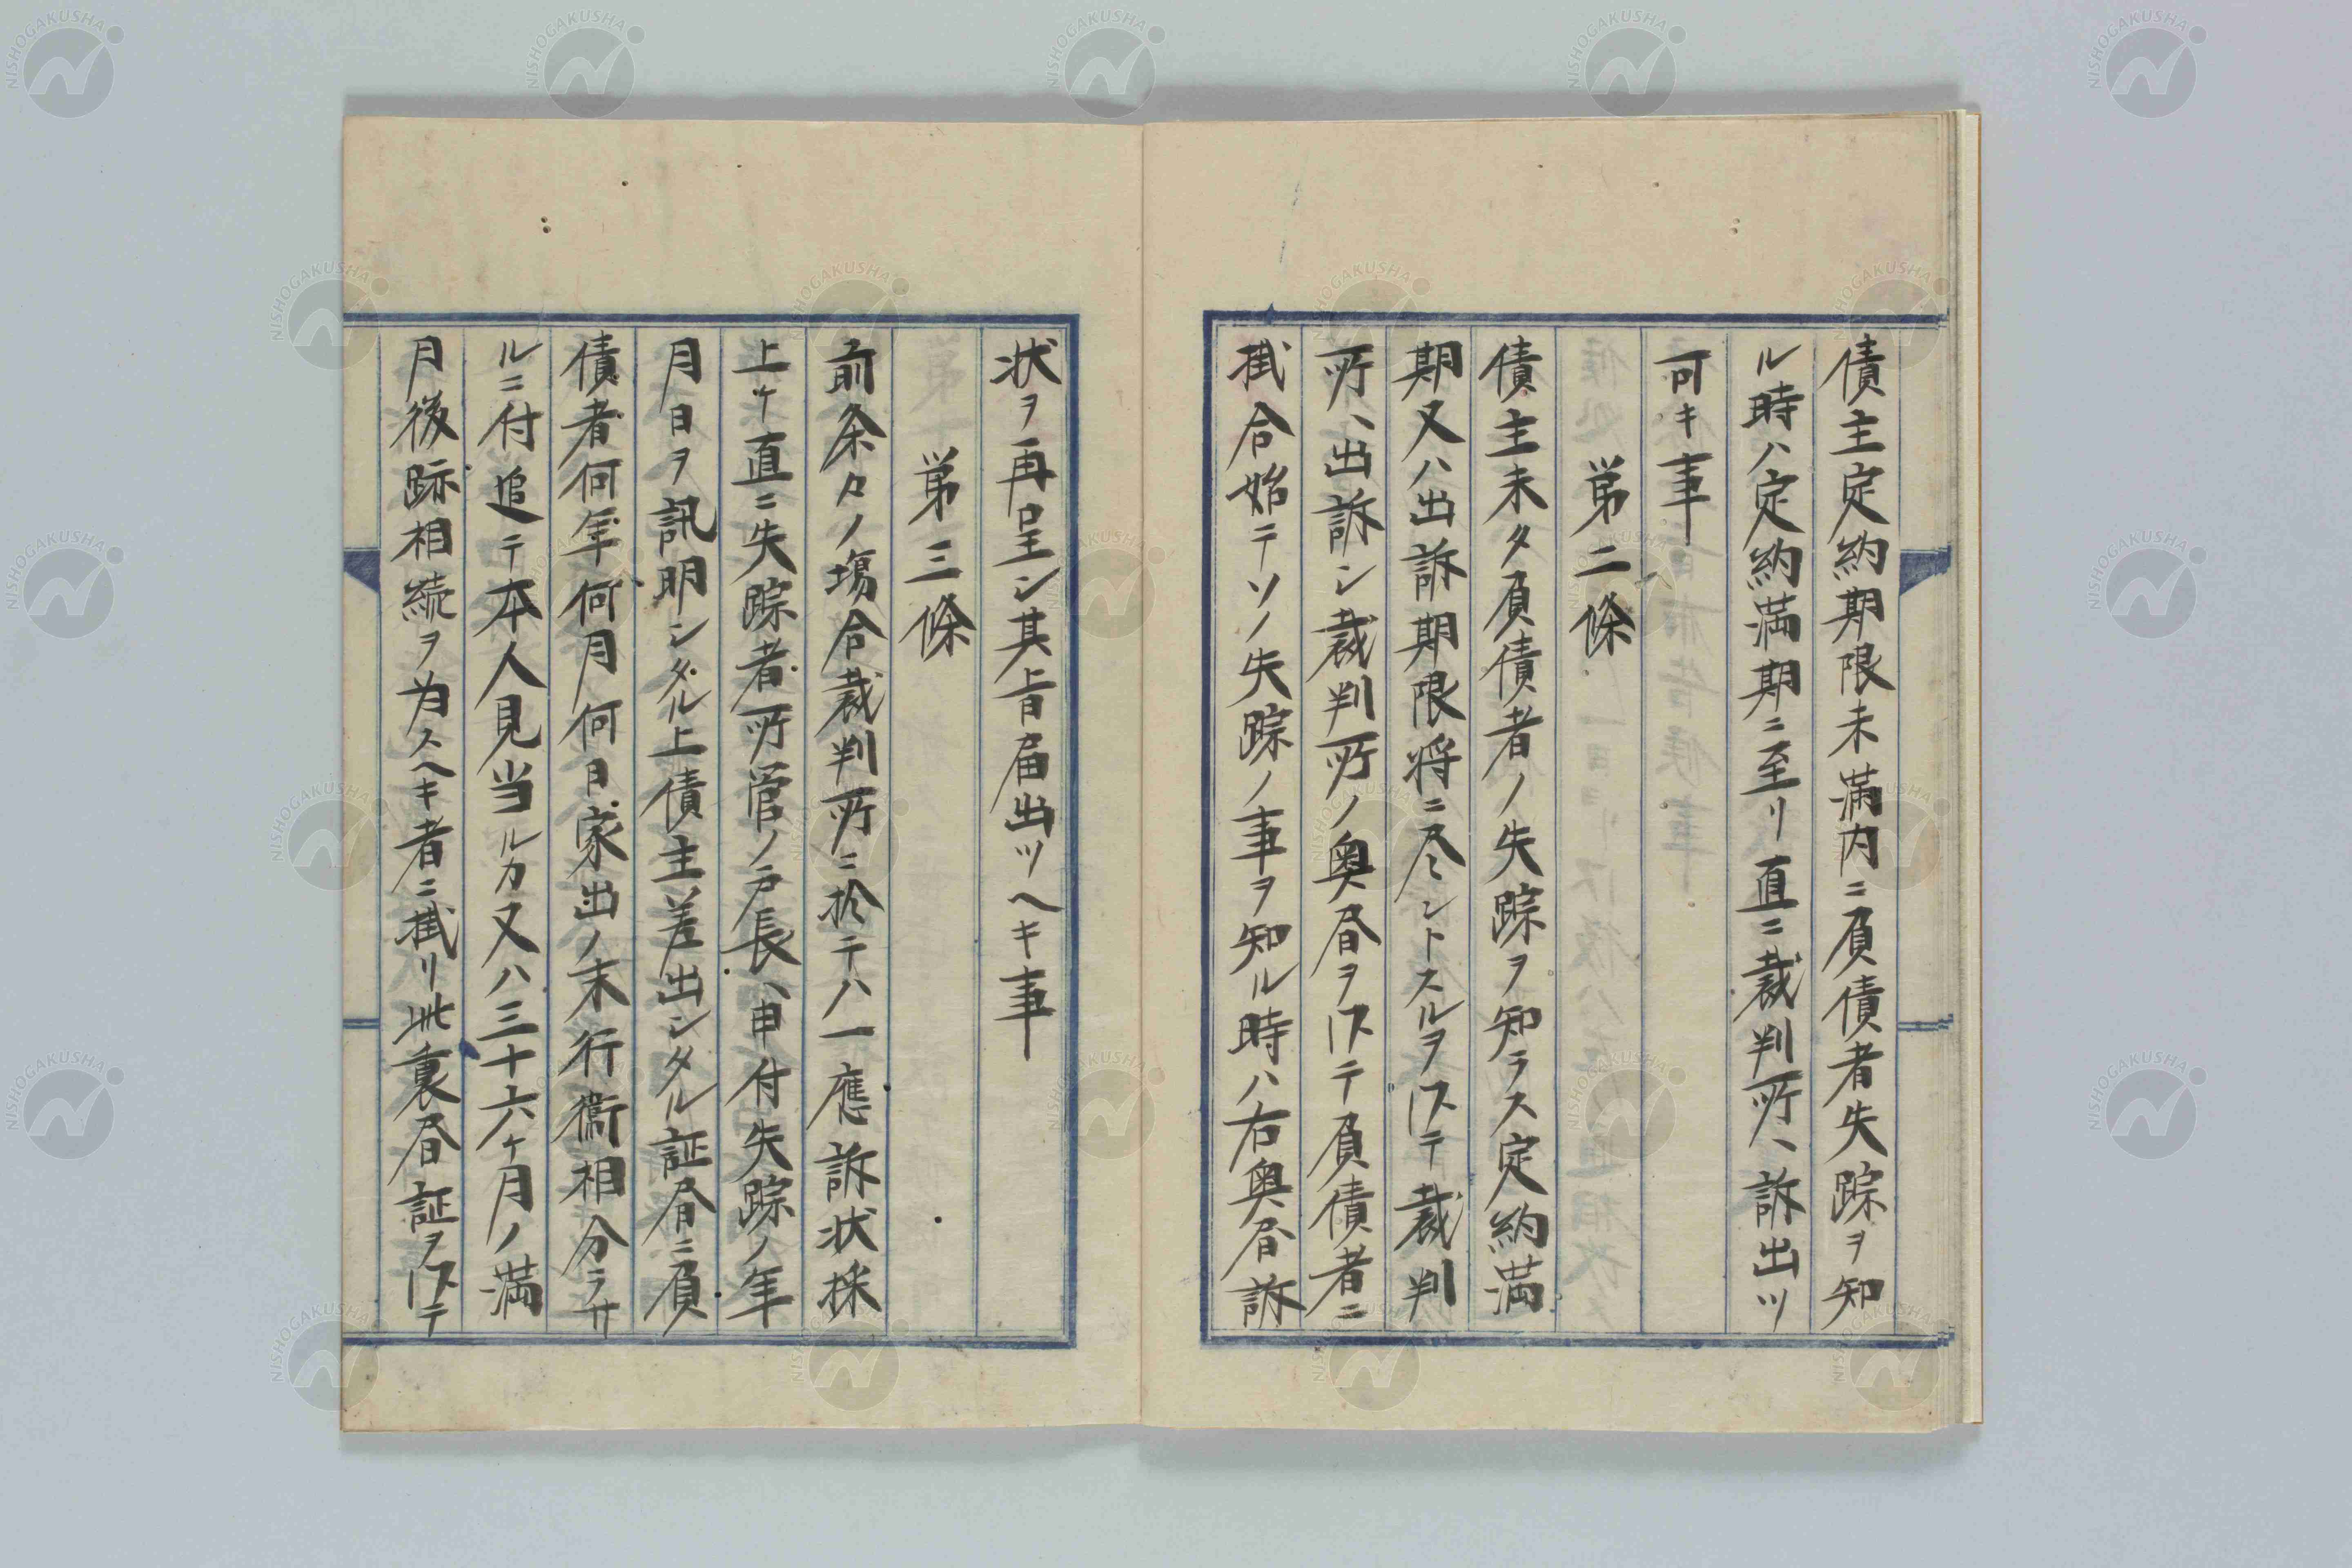 債主定約期限未満内ニ負債者失踪ヲ知
ル時ハ定約満期ニ至リ直ニ裁判所ヘ訴出ツ
可キ事
第二條
債主未タ負債者ノ失踪ヲ知ラス定約満
期又ハ出訴期限将ニ尽ントスルヲ以テ裁判
所ヘ出訴シ裁判所ノ奥書ヲ以テ負債者ニ
掛合始テソノ失踪ノ事ヲ知ル時ハ右奥書訴
状ヲ再呈シ其旨届出ツヘキ事
第三條
前条々ノ場合裁判所ニ於テハ一應訴状採
上ケ直ニ失踪者所管ノ戸長ヘ申付失踪ノ年
月日ヲ訊明シタル上債主差出シタル証書ニ負
債者何年何月何日家出ノ末行衛相分ラサ
ルニ付追テ本人見当ルカ又ハ三十六ケ月ノ満
月後跡相続ヲ為スヘキ者ニ掛リ此裏書証ヲ以テ
NISHOGAKUSHA